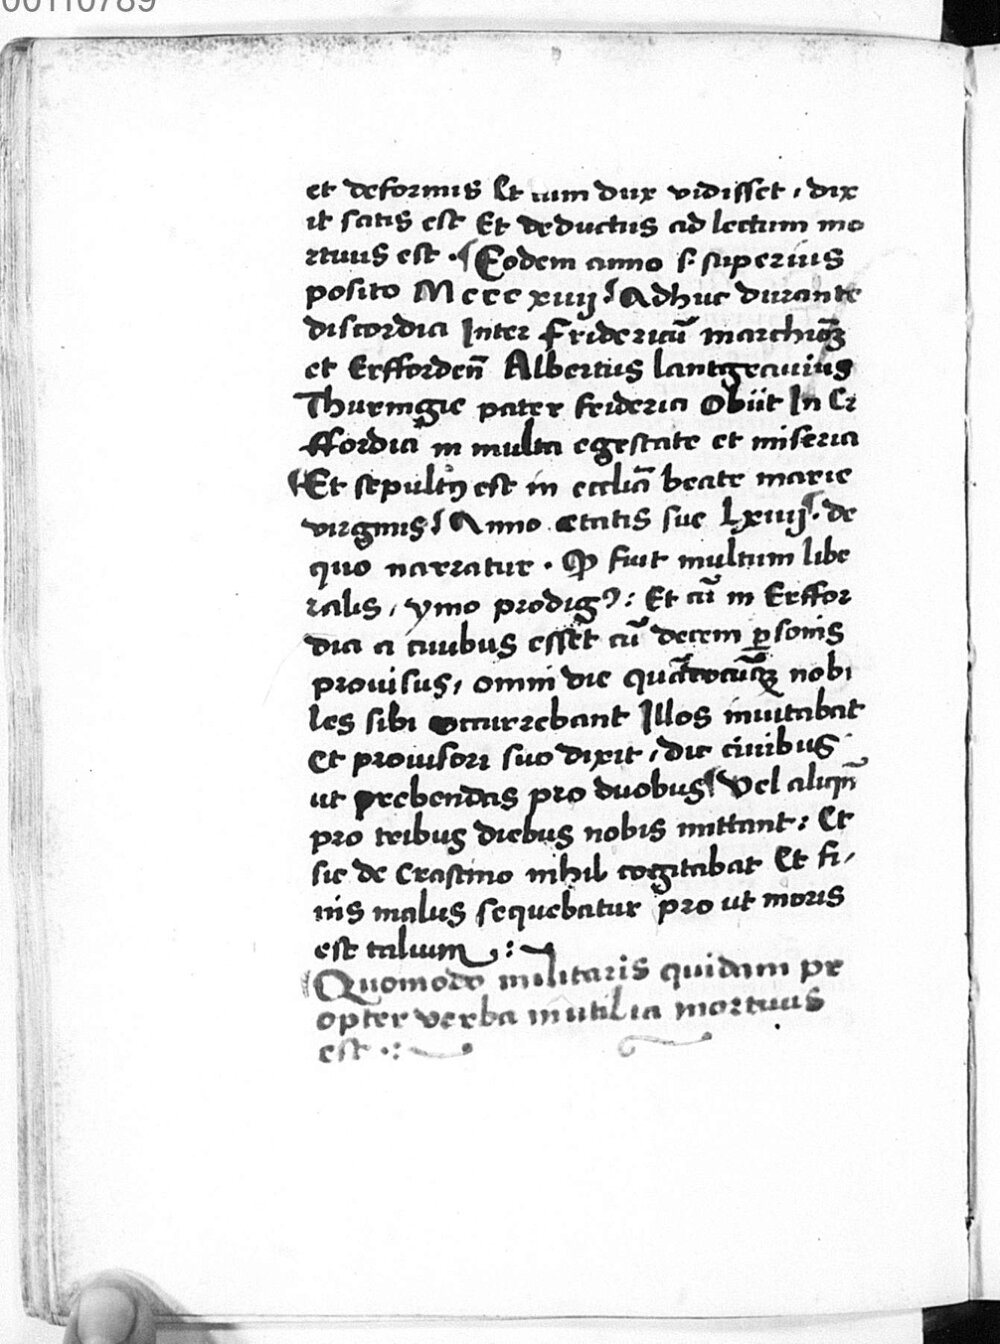 00110789
et deformis Et cum dux vidisset, dix
it satis est Et deductus ad lectum mo
rtuus est. ¶ Eodem anno s. superius
posito Mccc xiiij Adhuc durante
discordia Inter Fridericū marchiōȝ
et Erfforden̄ Albertus lantgrauius
Thuringie pater friderici Obiit In Er
ffordia in multa egestate et miseria
¶ Et sepultꝰ est in eccliā beate marie
virginis Anno etatis sue Lxiiij. de
quo narratur. Ꝙ fuit multum libe
ralis, ymo prodigꝰ: Et cū in Erffor
dia a ciuibus esset cū decem ꝑsonis
prouisus, omni die quādocūqȝ nobi
les sibi occurrebant Illos inuitabat
Et prouisori suo dixit, dic ciuibus
ut prebendas pro duobus Vel aliqn̄
pro tribus diebus nobis mittant: Et
sic de Crastino nihil cogitabat Et fi,
nis malus sequebatur pro ut moris
est talium :
Quomodo militaris quidam pr
opter verba inutilia mortuus
est .: